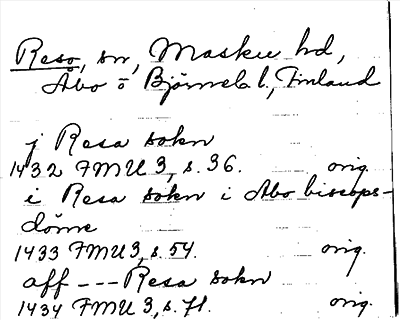 Reso, sn, Masku hd,
Åbo o Björneb. l., Finland
j Resa sokn
1432 FMU 3, s. 36. orig.
i Resa sokn i Abo biscops-
döme
1433 FMU 3, s. 54. orig.
aff --- Resa sokn
1434 FMU 3, s. 71. orig.